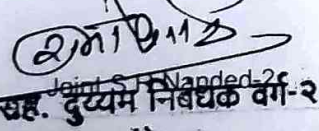 Joint S R Nanded-2
सह. दुय्यम निबंधक वर्ग-२